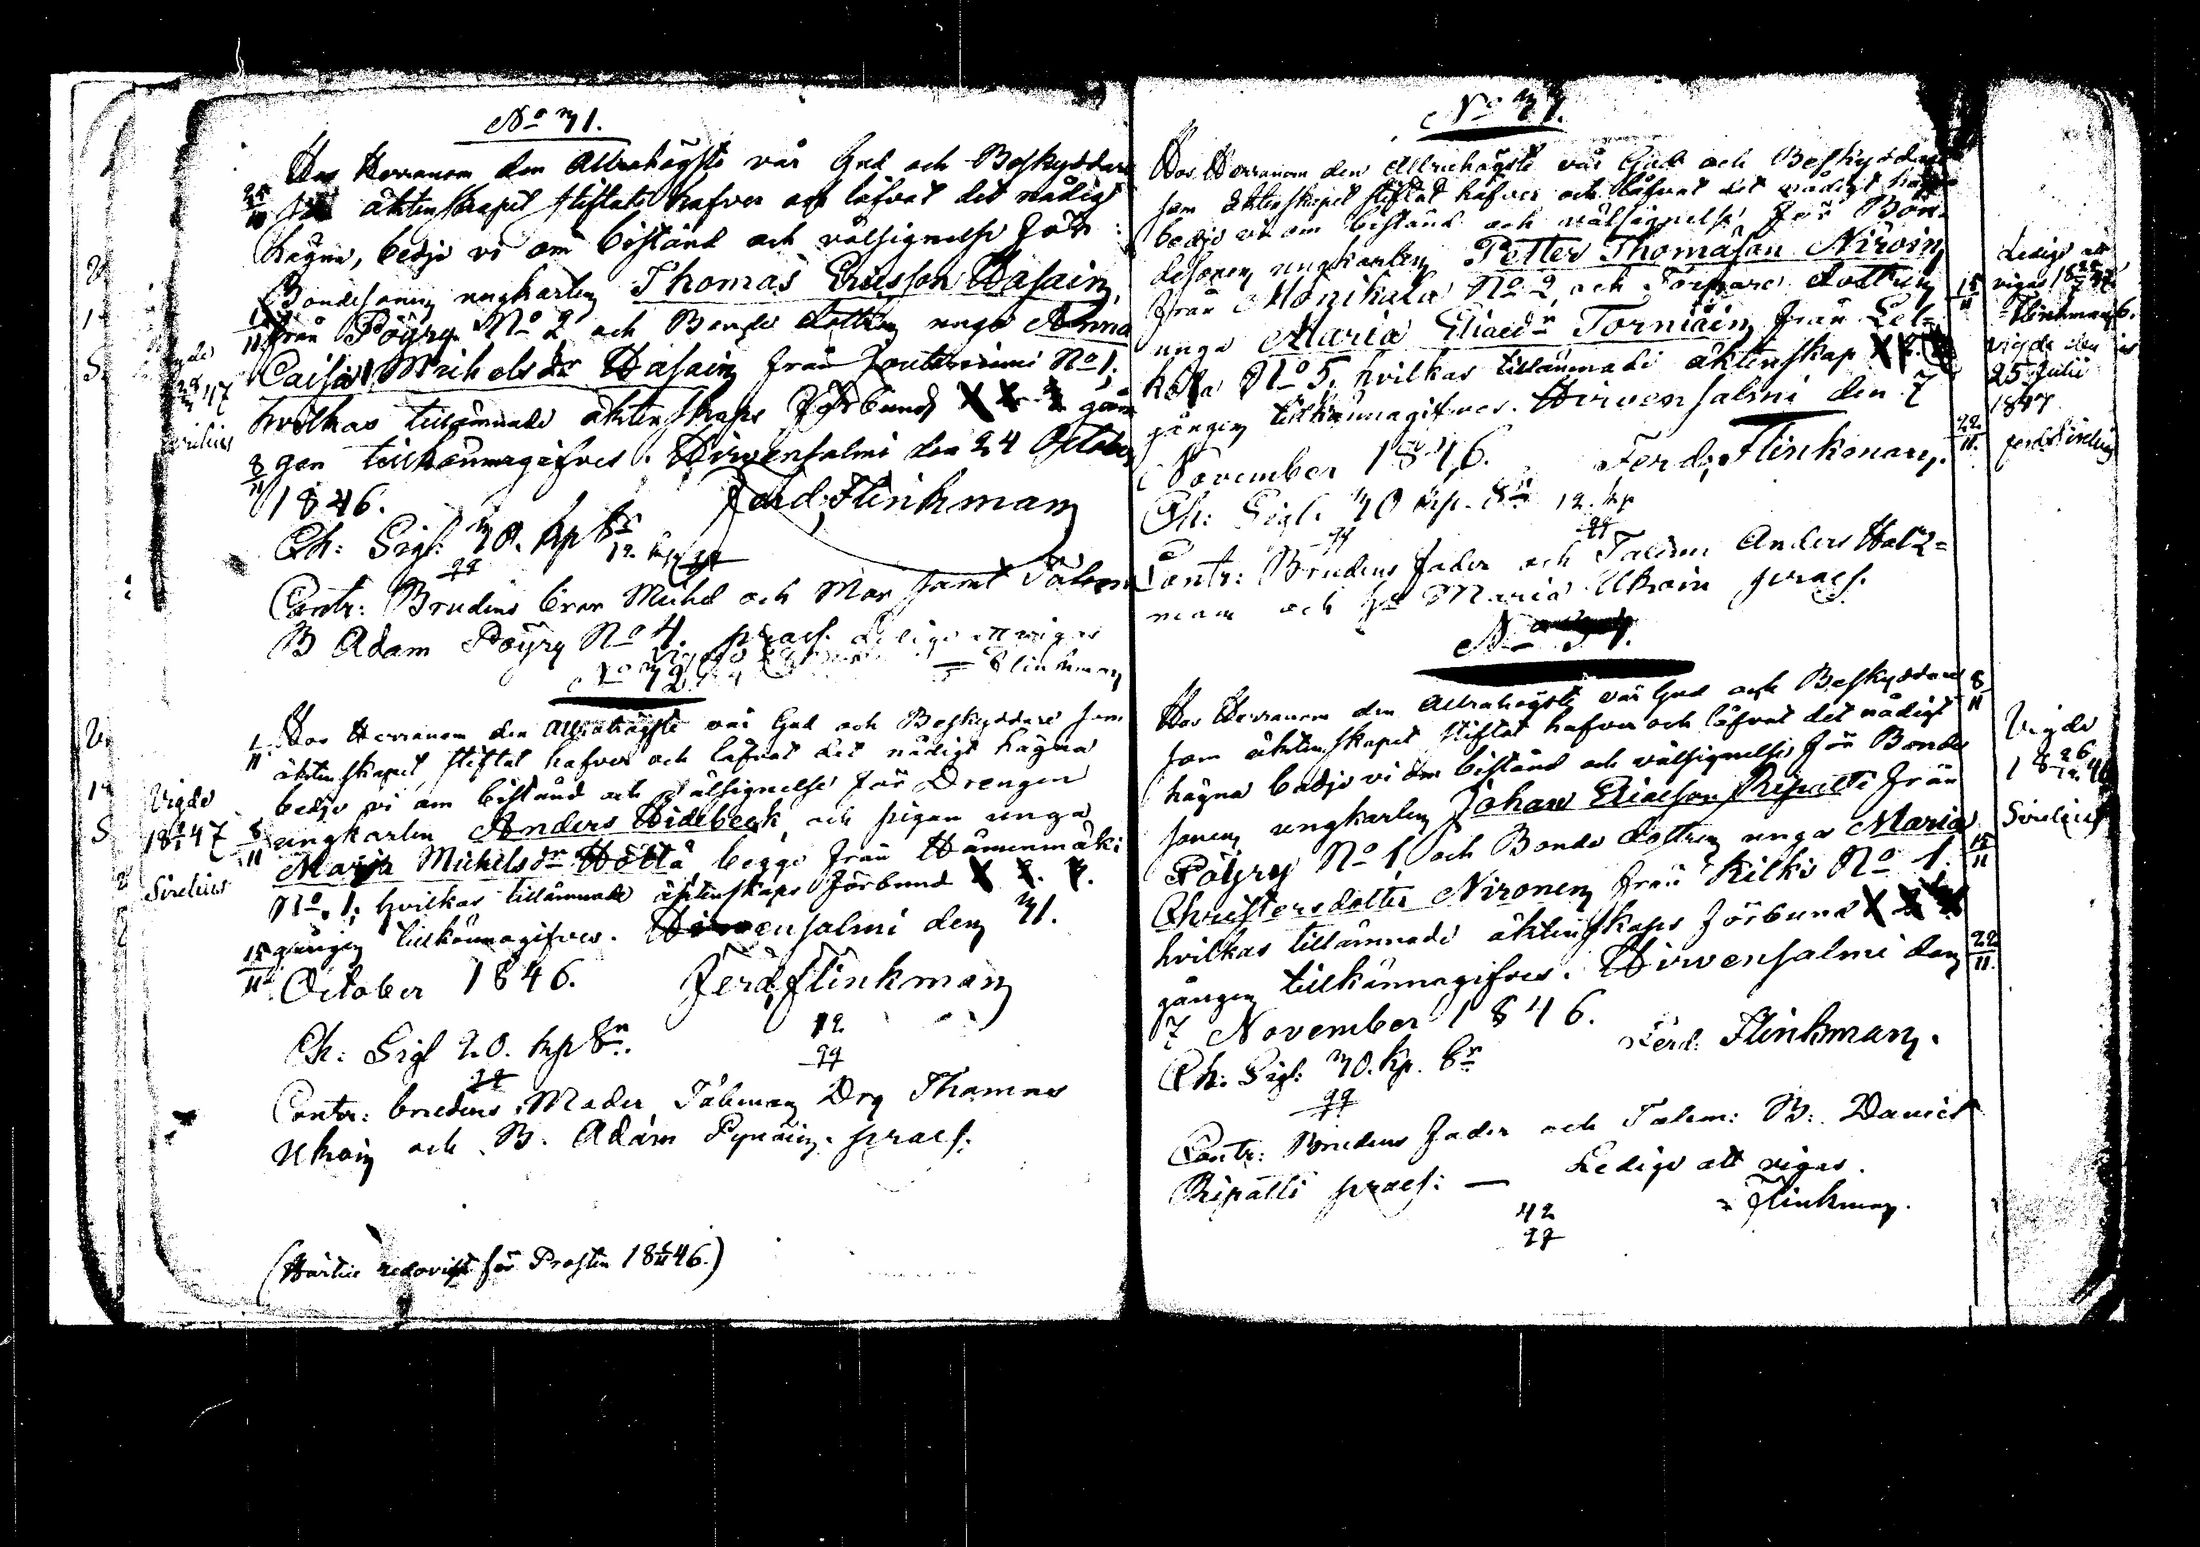 No 31.
Hos Herranom den Allrahögste vår Gud och Beskyddare
25/10 som äktenskapet stiftat hafver och låfvat det nådigt
hägna, bedje vi om bistånd och välsignelse för
Bondesonen ungkarlen Thomas Ericsson Hasain
1/11 från Pöyry No 2 och Bonde dottren unga Anna
Caisa Michelsdr Hasain från No 1,
hvilkas tillämnade äktenskaps förbund X X X gån
8/11 gen tillkännagifves. Hirvensalmi den 24 October
1846. Ferd: Flinkman
Ch: Sigl: 30. kp Sr 12. kp
Contr: Brudens bror Michel och Mor samt Talem
B Adam Pöyry No 4. praes. Ledige att vigas
= Flinkman
No 32.
Hos Herranom den Allrahögste vår Gud och Beskyddare som
1/11 äktenskapet stiftat hafver och låfvat det nådigt hägna
bedje vi om bistånd och välsignelse för Drengen
8/11 ungkarlen Anders Hidebeck, och pigan unga
Maria Michelsdr Höltä, begge från Hämenmäki
No 1. hvilkas tillämnade äktenskaps förbund X X. X.
15/11 gången tillkännagifves. Hirvensalmi den 31.
October 1846. Ferd. Flinkman
Ch: Sigl 20. kp Sr. 12
Contr: brudens Moder, Taleman Drg Thomas
Ukoin och B. Adam Pynöin. praes.
(Härtill redovist för Prosten 18 46.)
Vigde
18 47
Sirelius
No 31.
Hos Herranom den Allrahögste vår Gud och Beskyddare
som äktenskapet stiftat hafver och låfvat det nådigt hägna
bedje vi om bistånd och välsignelse för Bon-
desonen ungkarlen Petter Thomasson Niroin
från Monikala No 2, och Torpare dottren
unga Maria Eliaedr Torniain från Lel-
kola No 5, hvilkas tillämnade äktenskap X X X
gången tillkännagifves. Hirvensalmi den 7
November 1846. Ferd. Flinkman.
Ch: Sigl. 30 kp. Sr 12. kp
Contr: Brudens fader och Talem Anders Hotz=
man och Maria Ukoin praes.
15/11
22/11
Ledige att
vigas
= Flinkman
vigde den
25 Julii
1847
Ferd Sirelius
Hos Herranom den Allrahögste vår Gud och Beskyddare 8/11
som äktenskapet stiftat hafver och låfvat det nådigt
hägna bedje vi om bistånd och välsignelse för Bonde
sonen ungkarlen Johan Eliaeson Ripatti från
Pöyry No 1, och Bonde dottren unga Maria 15/11
Christersdotter Nironen från Kilki No 1.
hvilkas tillämnade äktenskaps förbund X X X
gången tillkännagifves. Hirvensalmi den 22/11.
7 November 1846. Ferd: Flinkman.
Ch: Sigl: 30. Kp. Sr
Contr: Brudens fader och Talem: B: Daniel
Ripatti praes: — Ledige att vigas.
= Flinkman.
Vigde
18 26/12 46
Sirelius